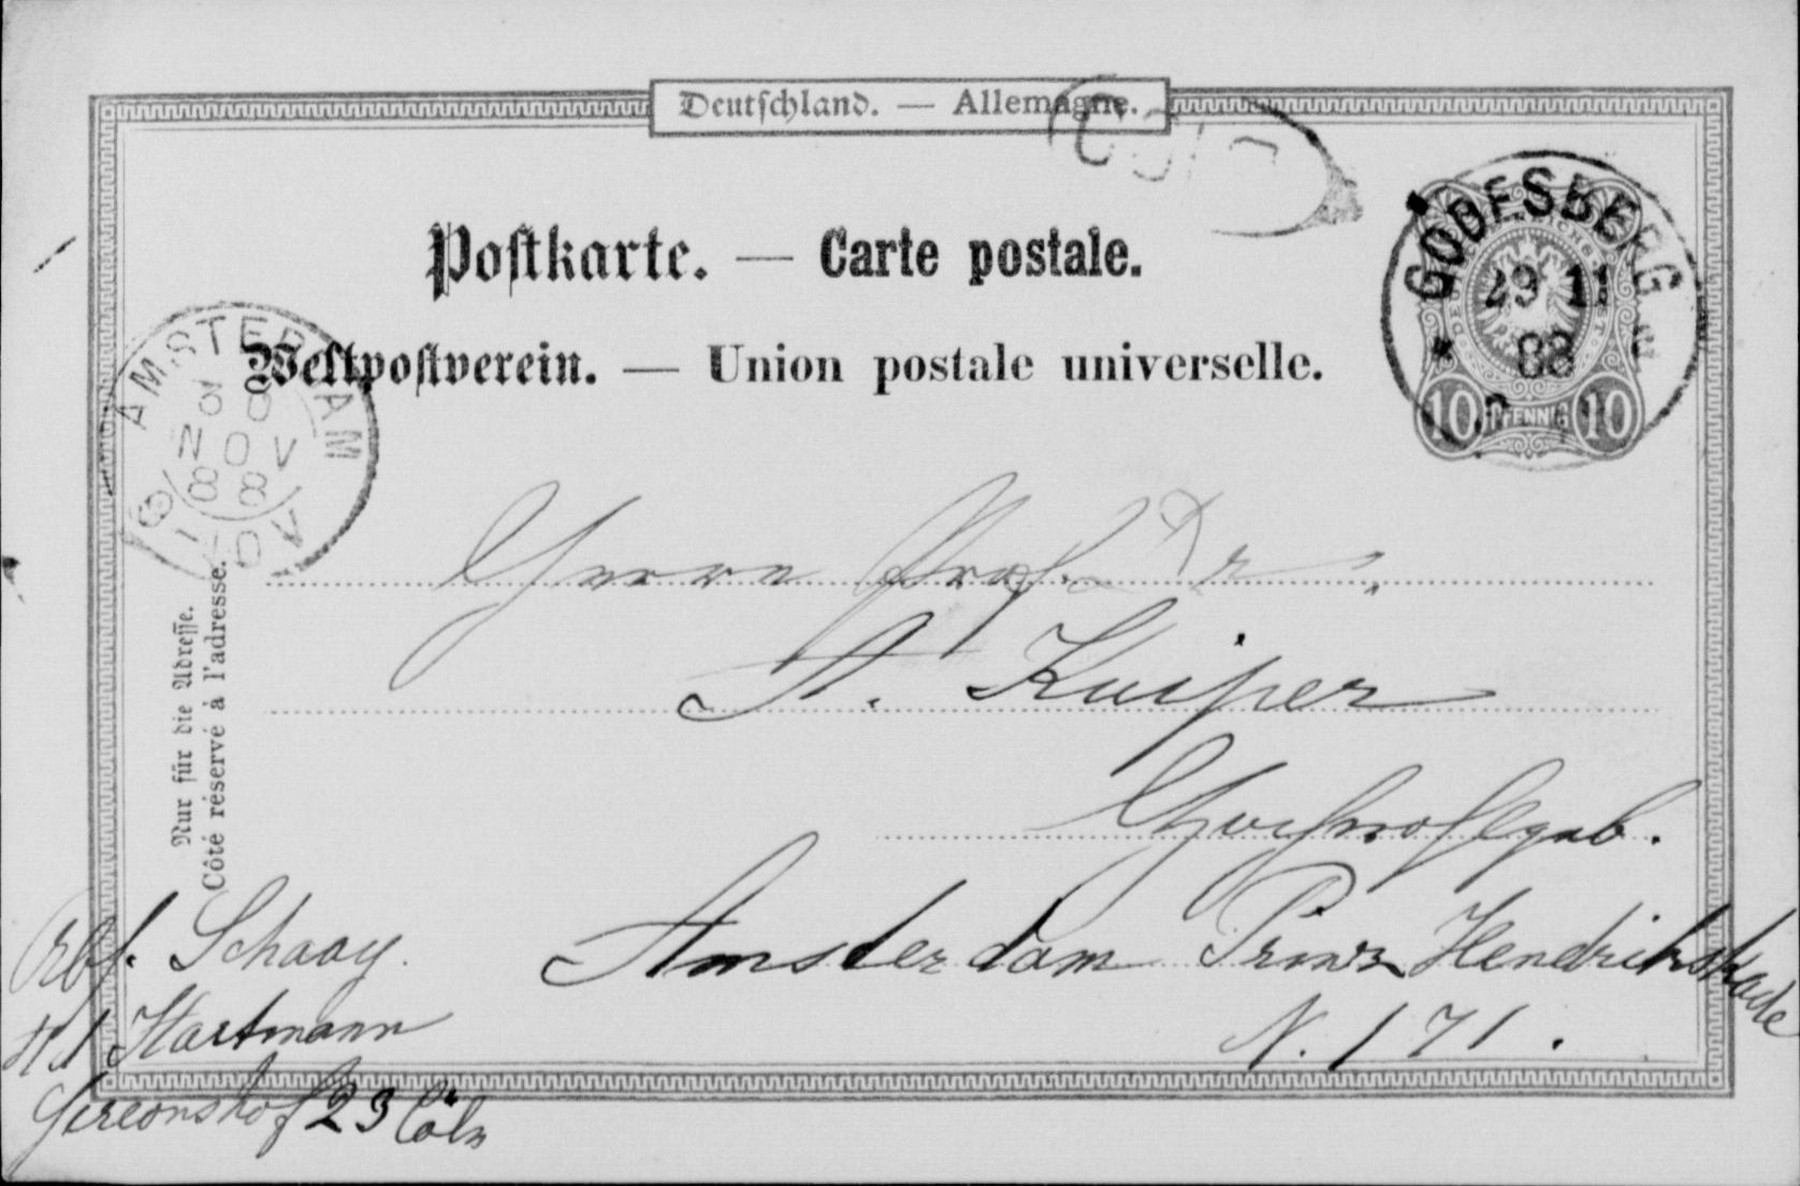 Deutschland. — Allemagne.
Postkarte. — Carte postale.
Weltpostverein. — Union postale universelle.
GODESBERG
29 11
88
10 PFENNIG 10
AMSTERDAM
30
NOV
88
Herrn Prof. Dr.
A. Kuijper
Hochwohlgeb.
Amsterdam Prins Hendrikskade
N. 171.
Nur für die Adresse.
Côté réservé à l'adresse.
Schaay.
Hartmann
Gereonshof 23 Cöln